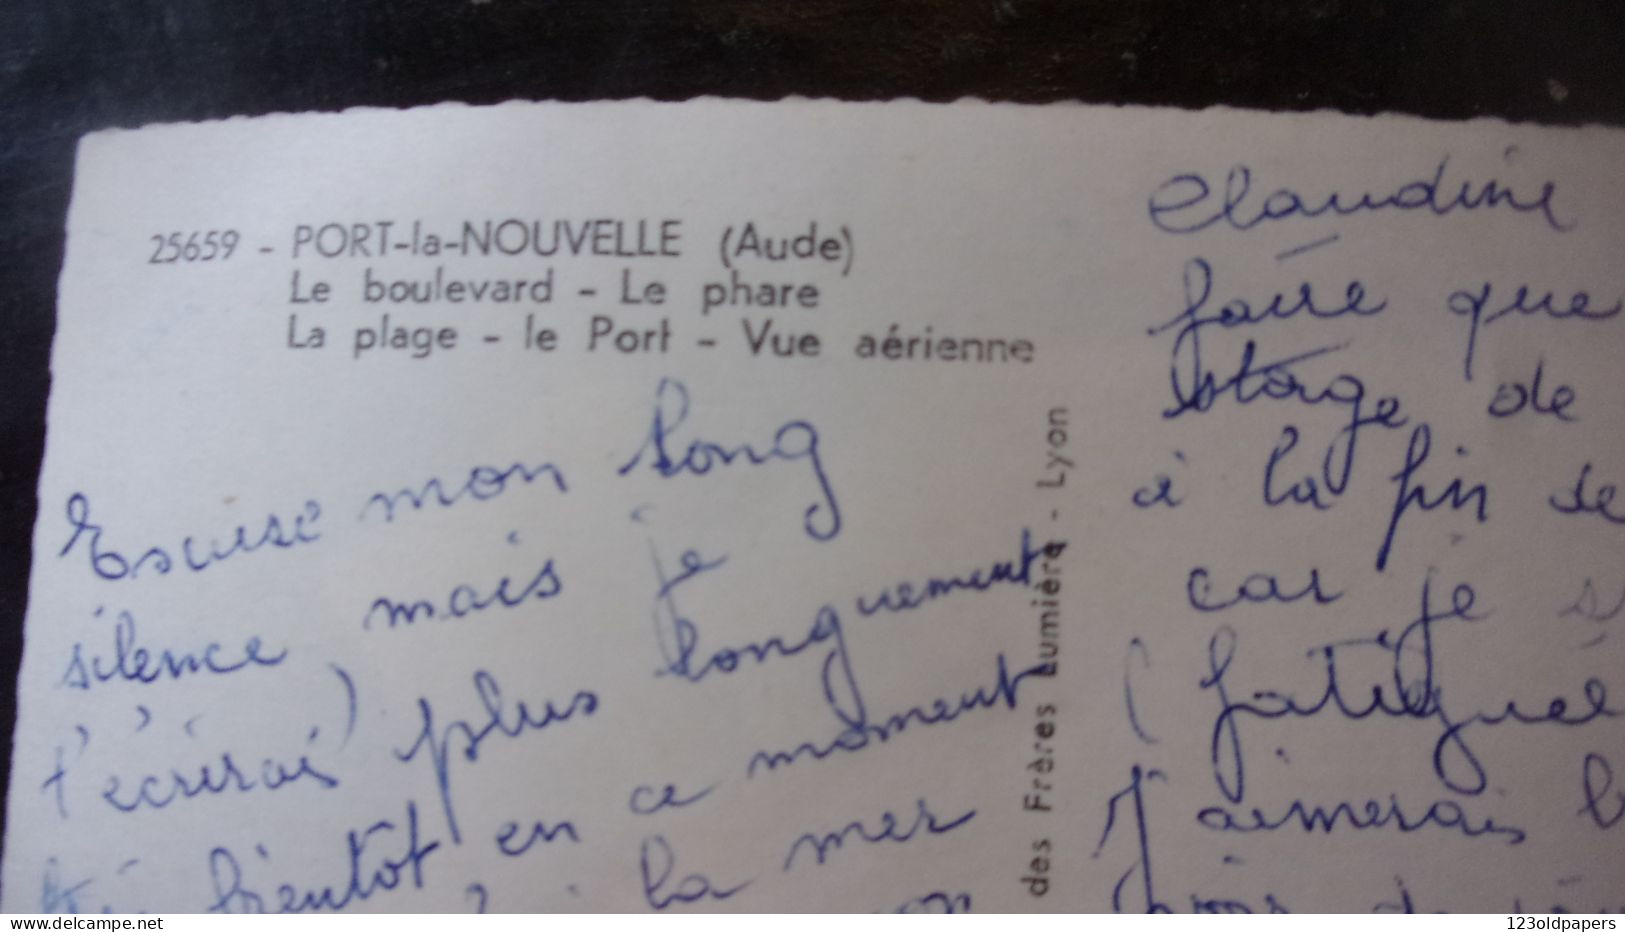 25659 - PORT-la-NOUVELLE (Aude)
Le boulevard - Le phare
La plage - le Port - Vue aérienne
Excuse mon long
silence mais je
t'écrirai plus longuement
bientôt en ce moment
la mer
des Frères Lumière - Lyon
Claudine
faire que
stage de
à la fin de
car je
(fatiguée
J'aimerais
123oldpapers